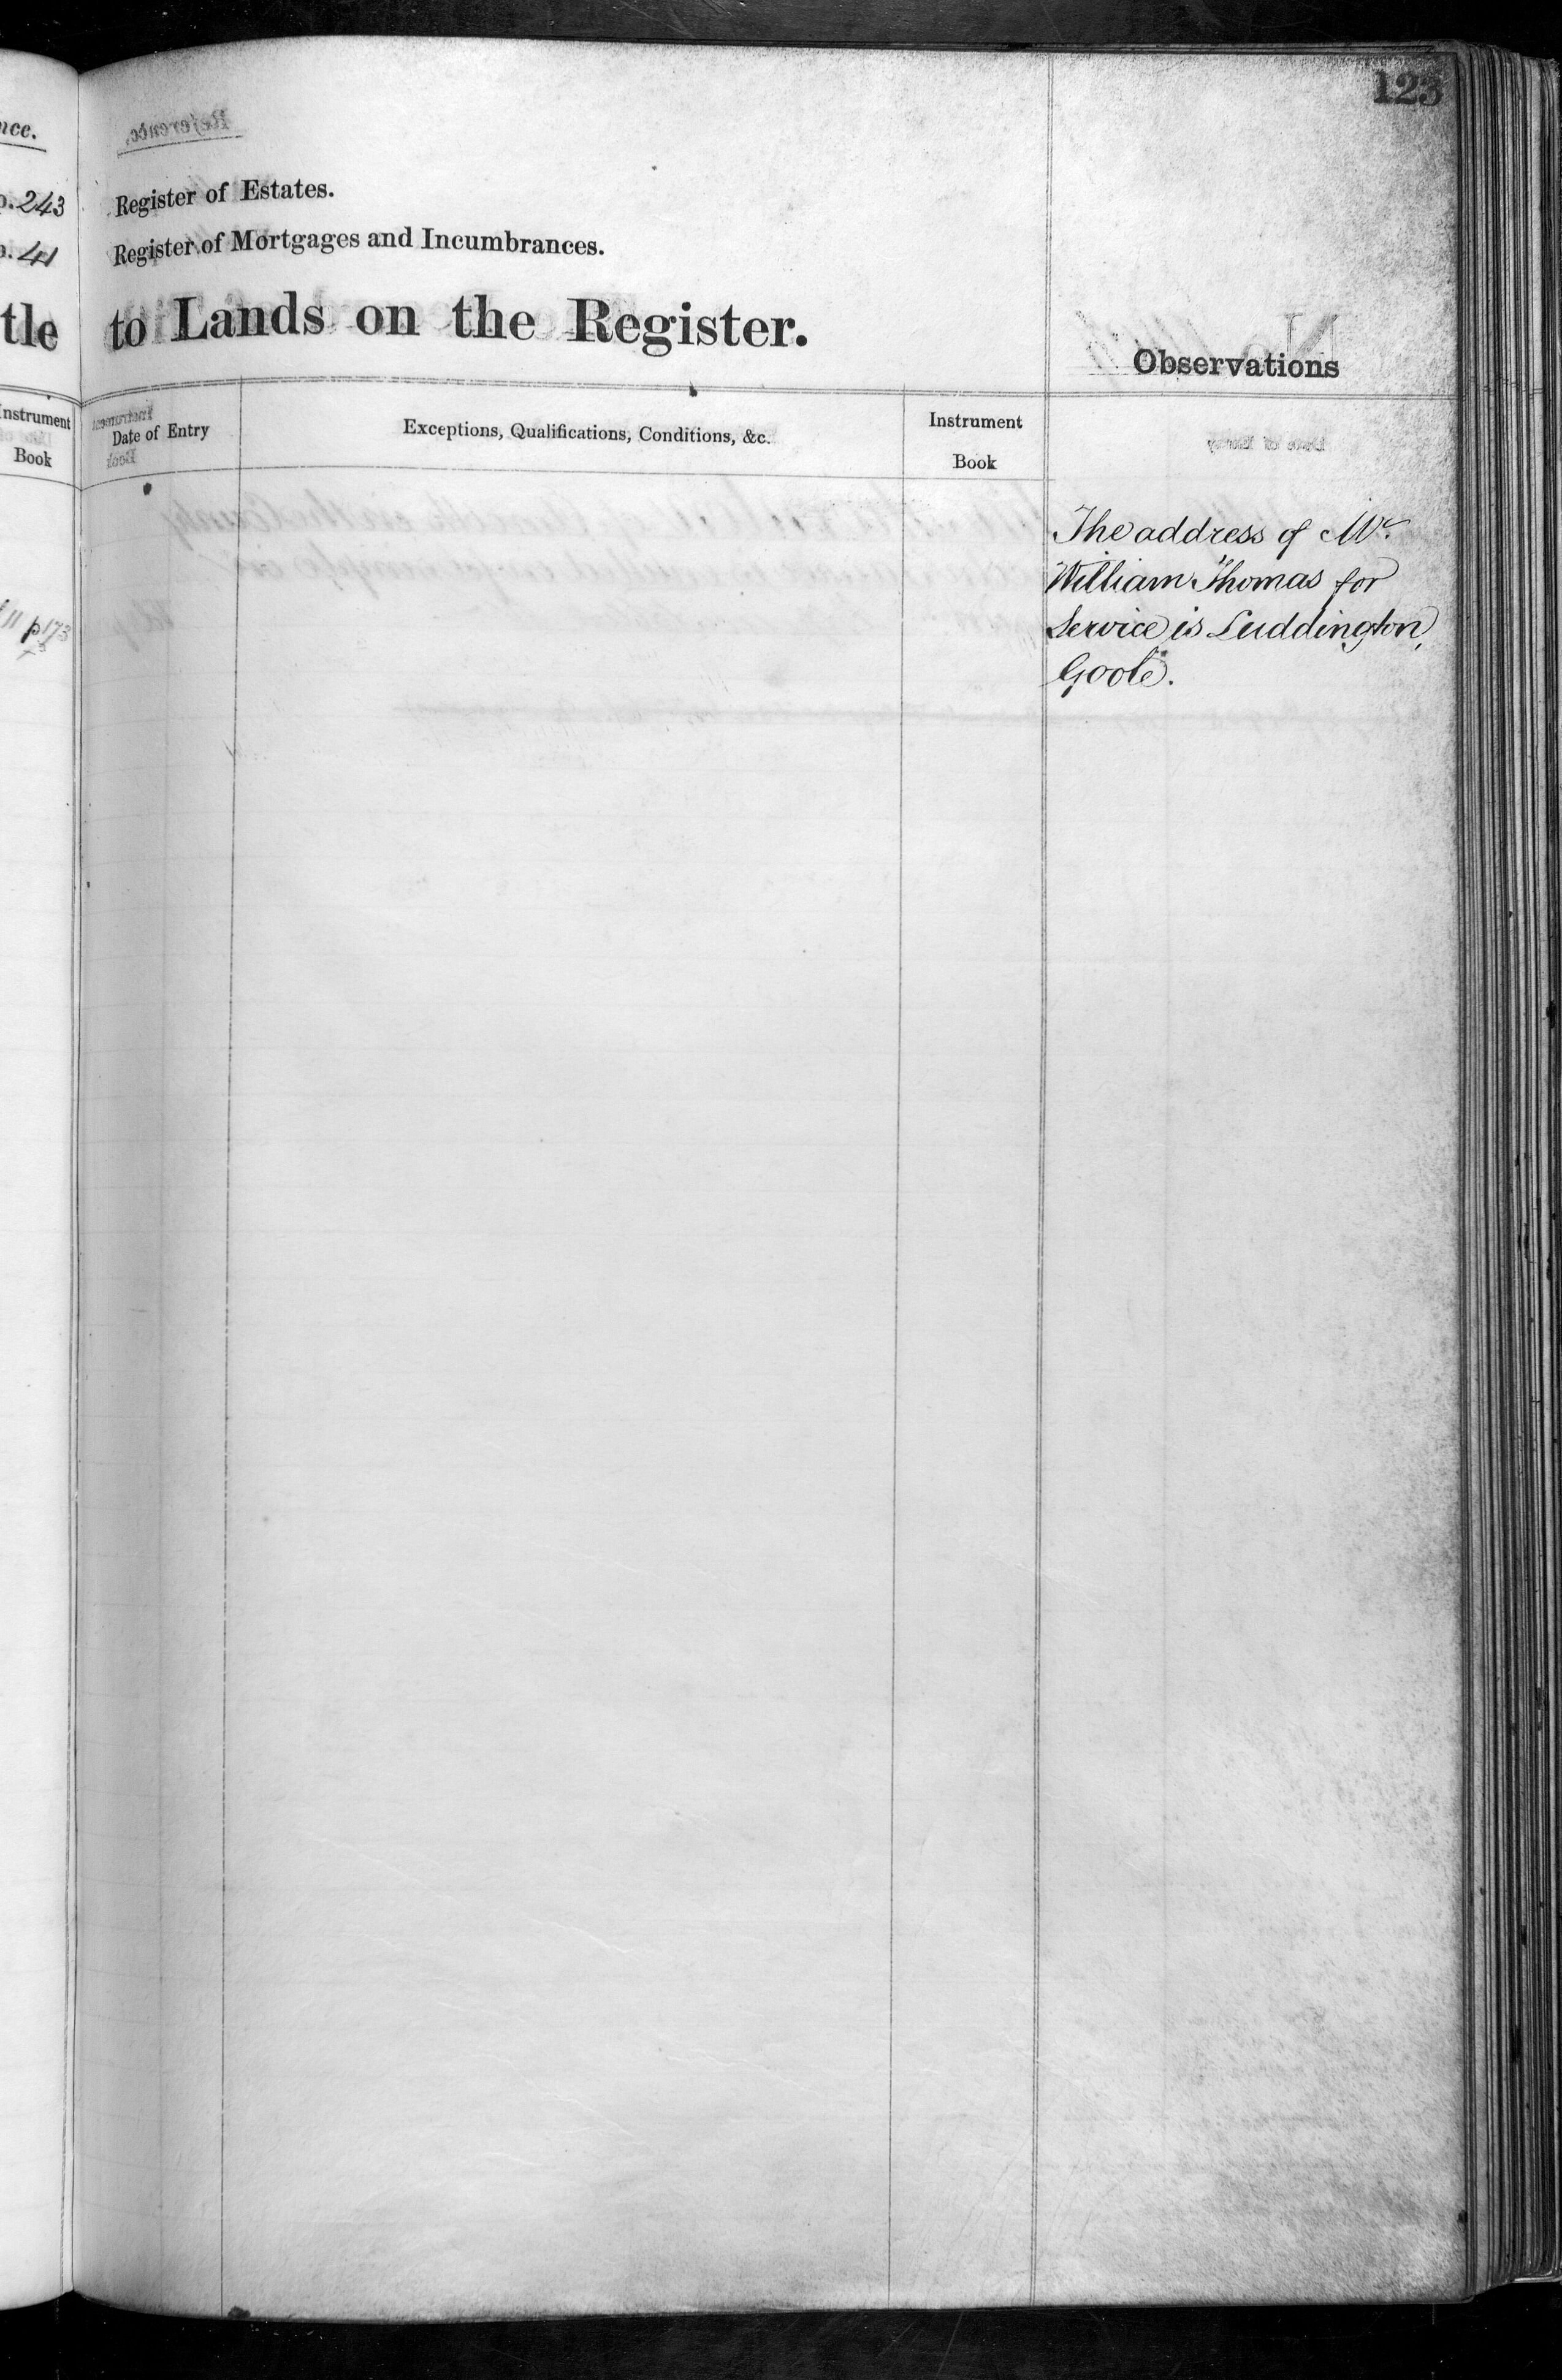 123
nce.
p. 243
p. 41
tle
Instrument
Book
11 p 173
Register of Estates.
Register of Mortgages and Incumbrances.
to Lands on the Register.
Observations
Date of Entry
Exceptions, Qualifications, Conditions, &c.
Instrument
Book
The address of Mr.
William Thomas for
Service is Luddington,
Goole.